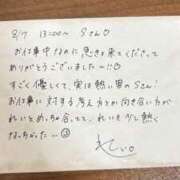 8/7 13:00〜 Sさん♡
お仕事中なのに 急きょ来てくださって
ありがとうございました〜!!♡
すごく優しくて、実は熱い男のSさん!
お仕事に対する考え方とか向き合い方が
れいとめっちゃ合ってて、れいも少し熱く
なっちゃった…☺
れい♡